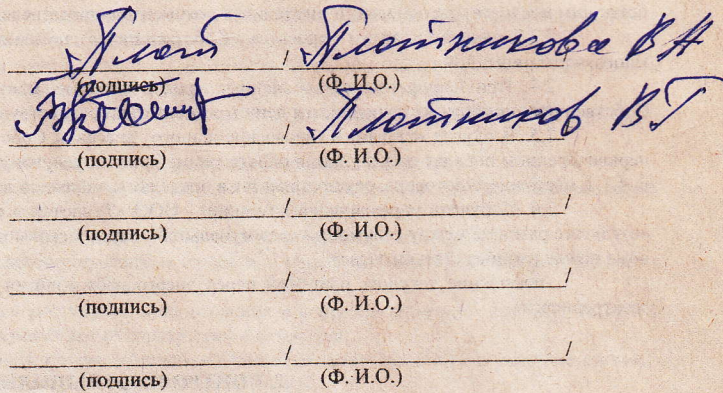 Плот / Плотникова В Н
(подпись) (Ф. И.О.)
/ Плотников ВГ
(подпись) (Ф. И.О.)
/ /
(подпись) (Ф. И.О.)
/ /
(подпись) (Ф. И.О.)
/ /
(подпись) (Ф. И.О.)